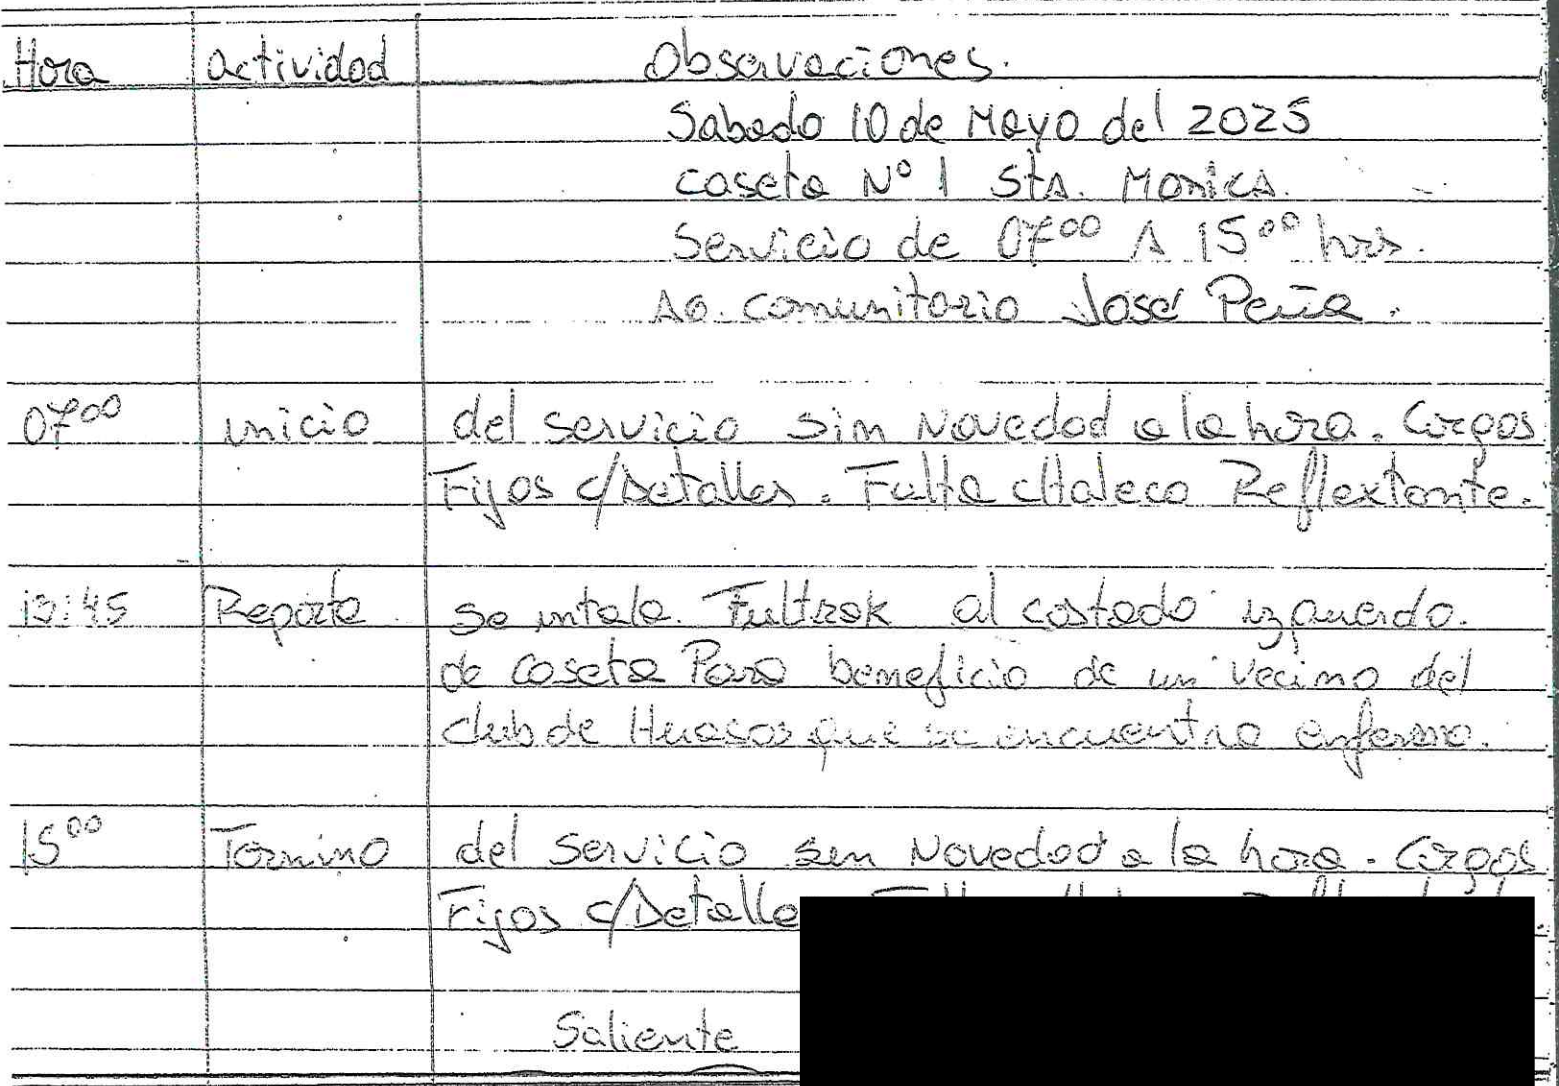 Hora actividad Observaciones.
Sabado 10 de Mayo del 2025
caseta N° 1 Sta. Monica.
Servicio de 07⁰⁰ A 15⁰⁰ hrs.
Ag. comunitario José Peña.
07⁰⁰ inicio del servicio sin Novedad a la hora. Cargos
Fijos c/Detalles. Falta cHaleco Reflextante.
13:45 Reporte se intala Fultrak al costado izquierdo.
de caseta Para beneficio de un vecino del
club de Huasos que se encuentra enfermo.
15⁰⁰ Termino del servicio sin Novedad a la hora. Cargos
Fijos c/Detalle
Saliente